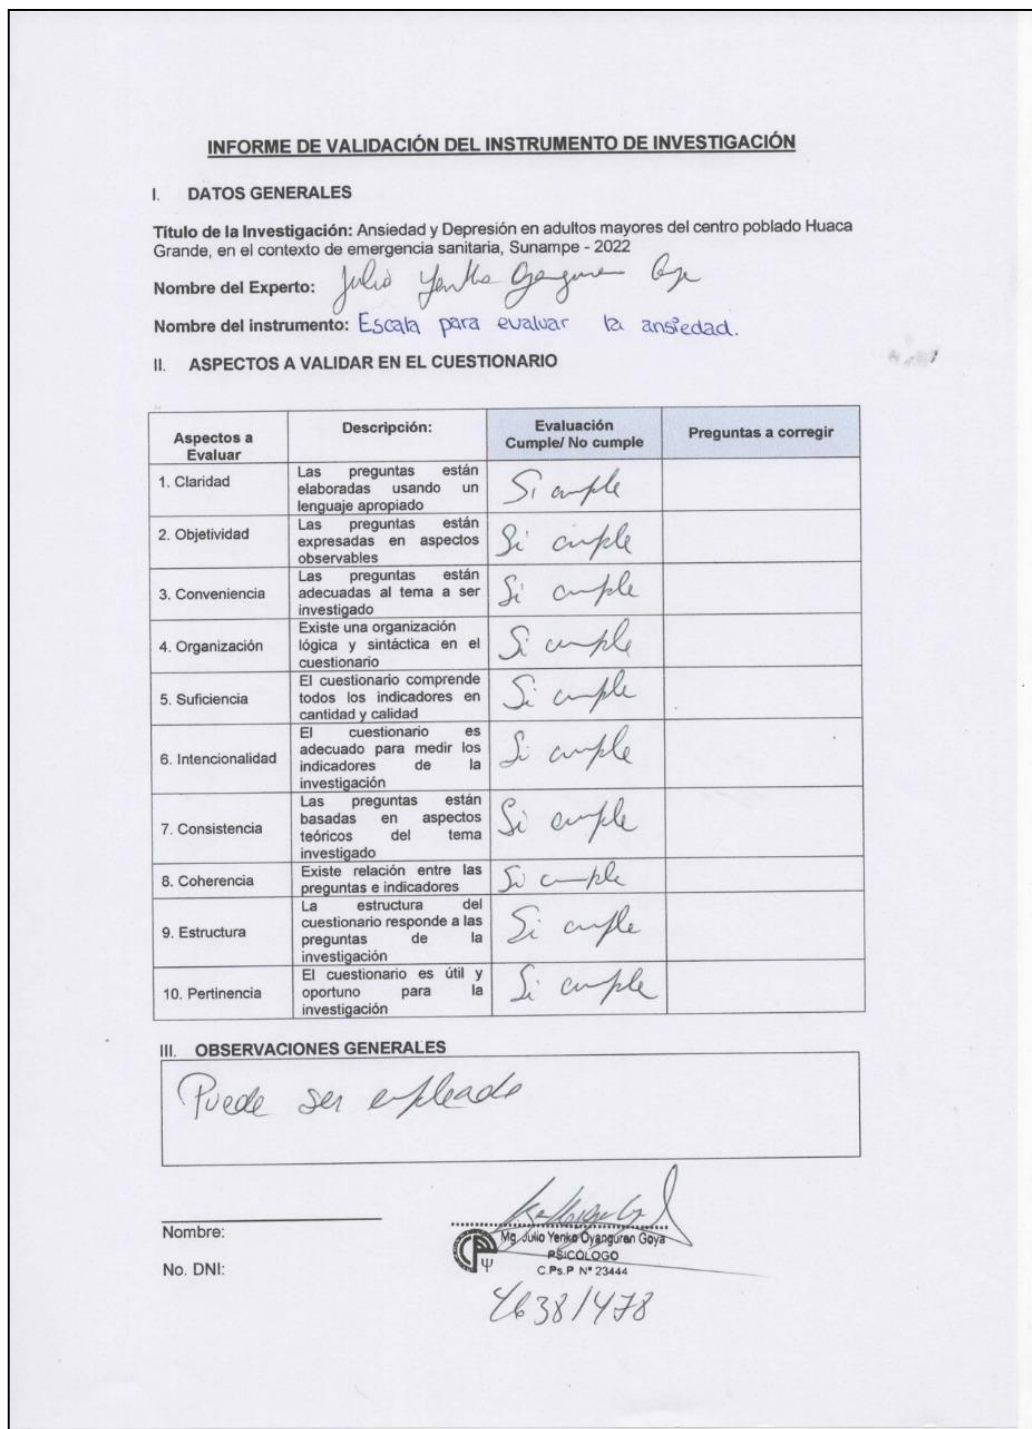 INFORME DE VALIDACIÓN DEL INSTRUMENTO DE INVESTIGACIÓN
I. DATOS GENERALES
Título de la Investigación: Ansiedad y Depresión en adultos mayores del centro poblado Huaca
Grande, en el contexto de emergencia sanitaria, Sunampe - 2022
Nombre del Experto: Julio Yenko Oyanguren Goya
Nombre del instrumento: Escala para evaluar la ansiedad.
II. ASPECTOS A VALIDAR EN EL CUESTIONARIO
Aspectos a
Evaluar
Descripción:
Evaluación
Cumple/ No cumple
Preguntas a corregir
1. Claridad
Las preguntas están
elaboradas usando un
lenguaje apropiado
Si cumple
2. Objetividad
Las preguntas están
expresadas en aspectos
observables
Si cumple
3. Conveniencia
Las preguntas están
adecuadas al tema a ser
investigado
Si cumple
4. Organización
Existe una organización
lógica y sintáctica en el
cuestionario
Si cumple
5. Suficiencia
El cuestionario comprende
todos los indicadores en
cantidad y calidad
Si cumple
6. Intencionalidad
El cuestionario es
adecuado para medir los
indicadores de la
investigación
Si cumple
7. Consistencia
Las preguntas están
basadas en aspectos
teóricos del tema
investigado
Si cumple
8. Coherencia
Existe relación entre las
preguntas e indicadores
Si cumple
9. Estructura
La estructura del
cuestionario responde a las
preguntas de la
investigación
Si cumple
10. Pertinencia
El cuestionario es útil y
oportuno para la
investigación
Si cumple
III. OBSERVACIONES GENERALES
Puede ser empleado
Nombre:
No. DNI:
Mg. Julio Yenko Oyanguren Goya
PSICÓLOGO
C.Ps.P N° 23444
46381478